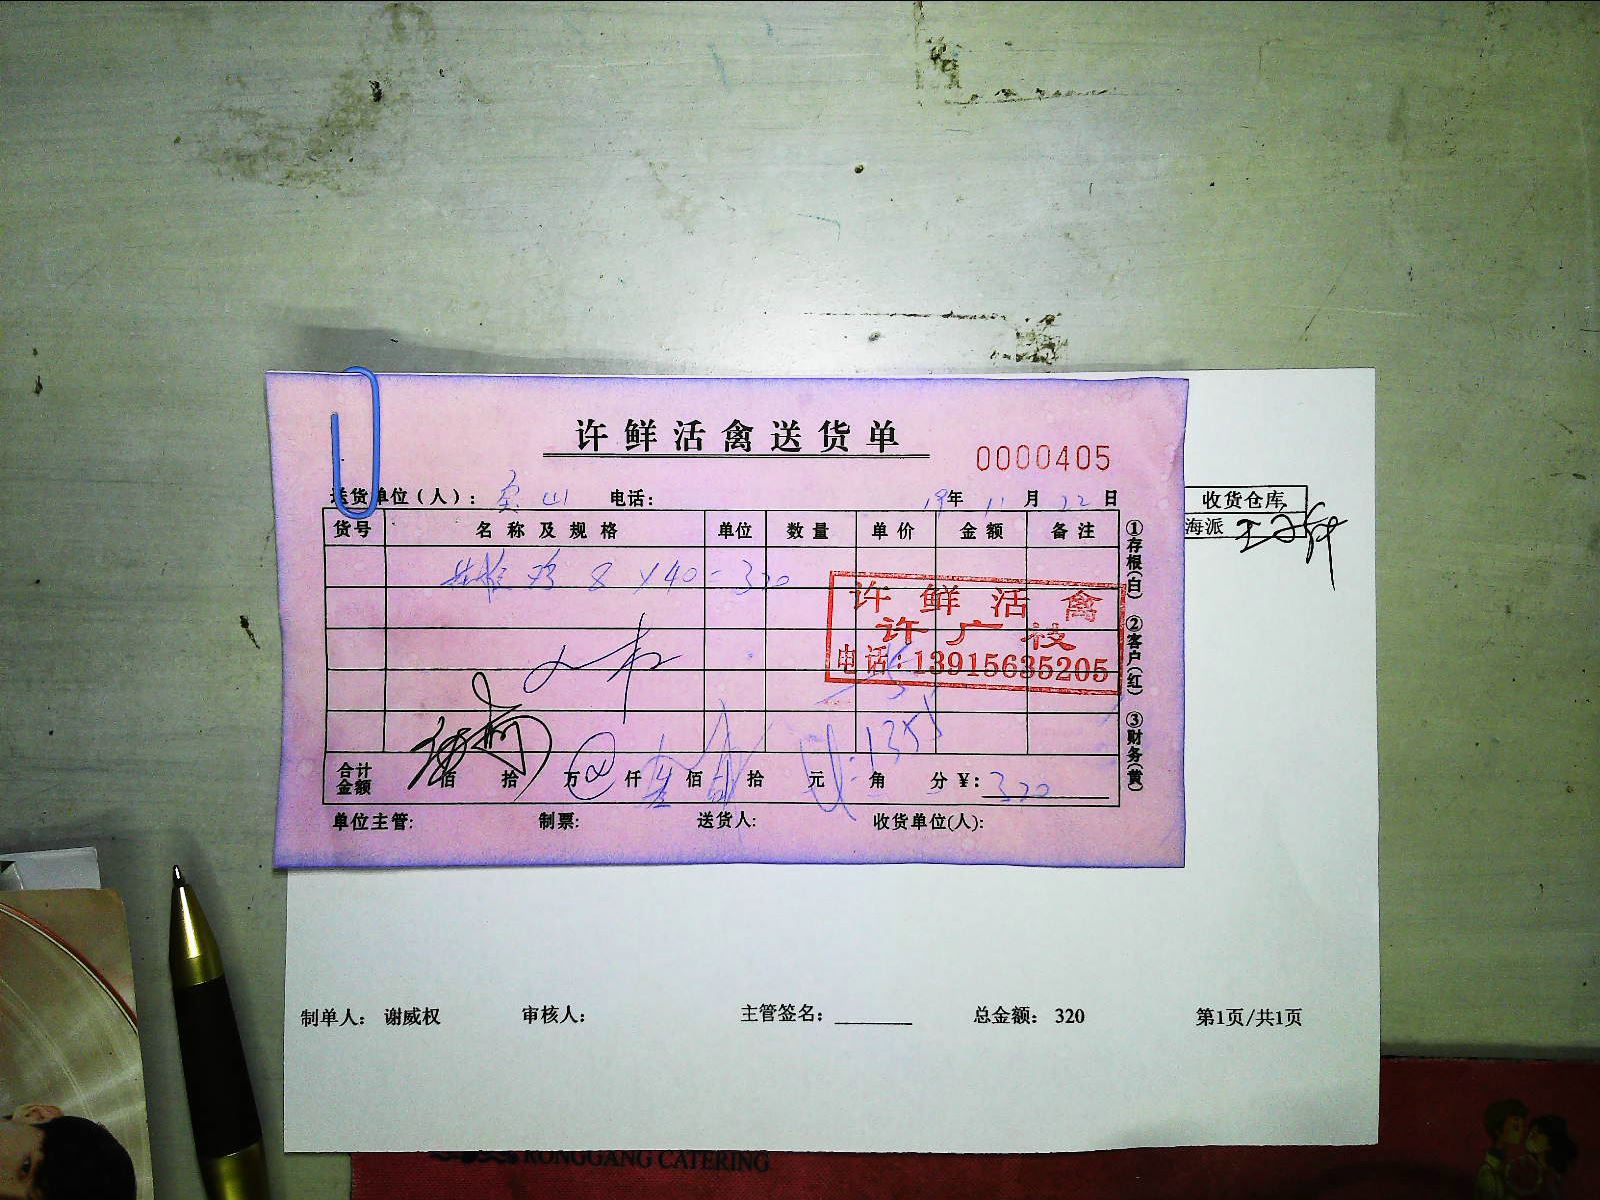 许鲜活禽送货单
0000405
送货单位(人): 电话: 19年 11月 22日
收货仓库
货号 名称及规格 单位 数量 单价 金额 备注
海派
鸡 8 x 40 = 320
许鲜活禽
许广枝
电话:13915635205
合计金额 佰 拾 万 仟 佰 拾 元 角 分 ¥: 320
单位主管: 制票: 送货人: 收货单位(人):
①存根(白) ②客户(红) ③财务(黄)
制单人: 谢威权 审核人: 主管签名: 总金额: 320 第1页/共1页
RONGGANG CATERING